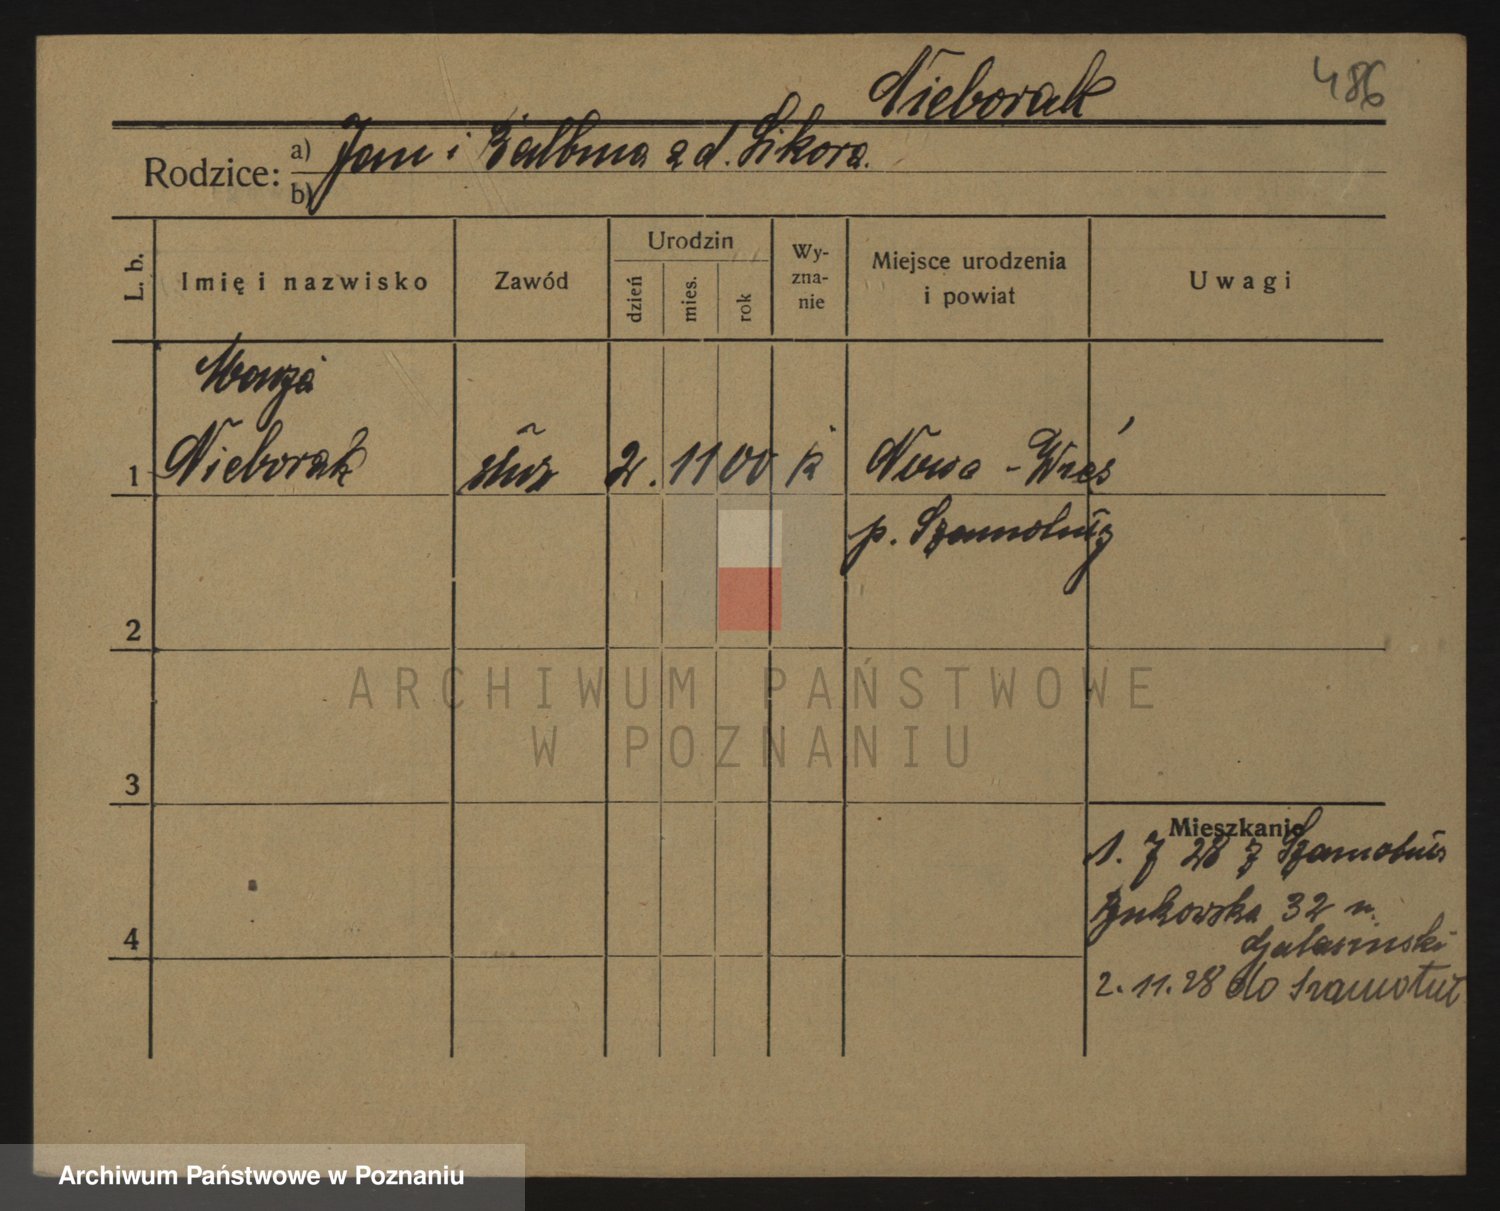 Nieborak
486
Rodzice:
a) Jan i Balbina z d. Sikora.
b)
L. b.
Imię i nazwisko
Zawód
Urodzin
dzień
mies.
rok
Wy-
zna-
nie
Miejsce urodzenia
i powiat
Uwagi
Marja
1 Nieborak służ 2. 11 00 k Nowa - Wieś
p. Szamotuły
2
3
4
ARCHIWUM PAŃSTWOWE
W POZNANIU
Mieszkanie
1. 7 28 z Szamotuły
Bukowska 32 u
Galasinski
2.11.28 do Szamotuł
Archiwum Państwowe w Poznaniu